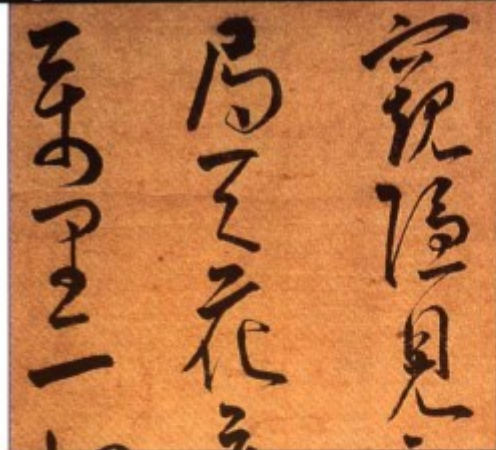 窺隱見
局天花
萬里一